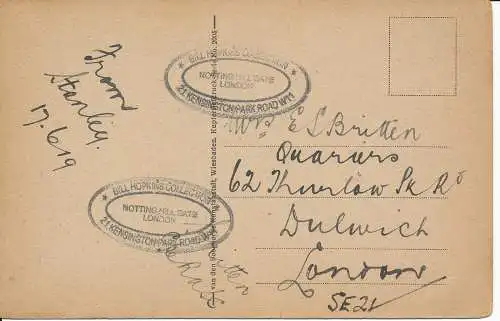 From
Stanley.
17.6/19
BILL HOPKINS COLLECTION
NOTTING HILL GATE
LONDON
21 KENSINGTON PARK ROAD W11
Mrs E S Britten
Quariers
62 Thurlow Pk Rd
Dulwich
London
SE21
BILL HOPKINS COLLECTION
NOTTING HILL GATE
LONDON
21 KENSINGTON PARK ROAD W11